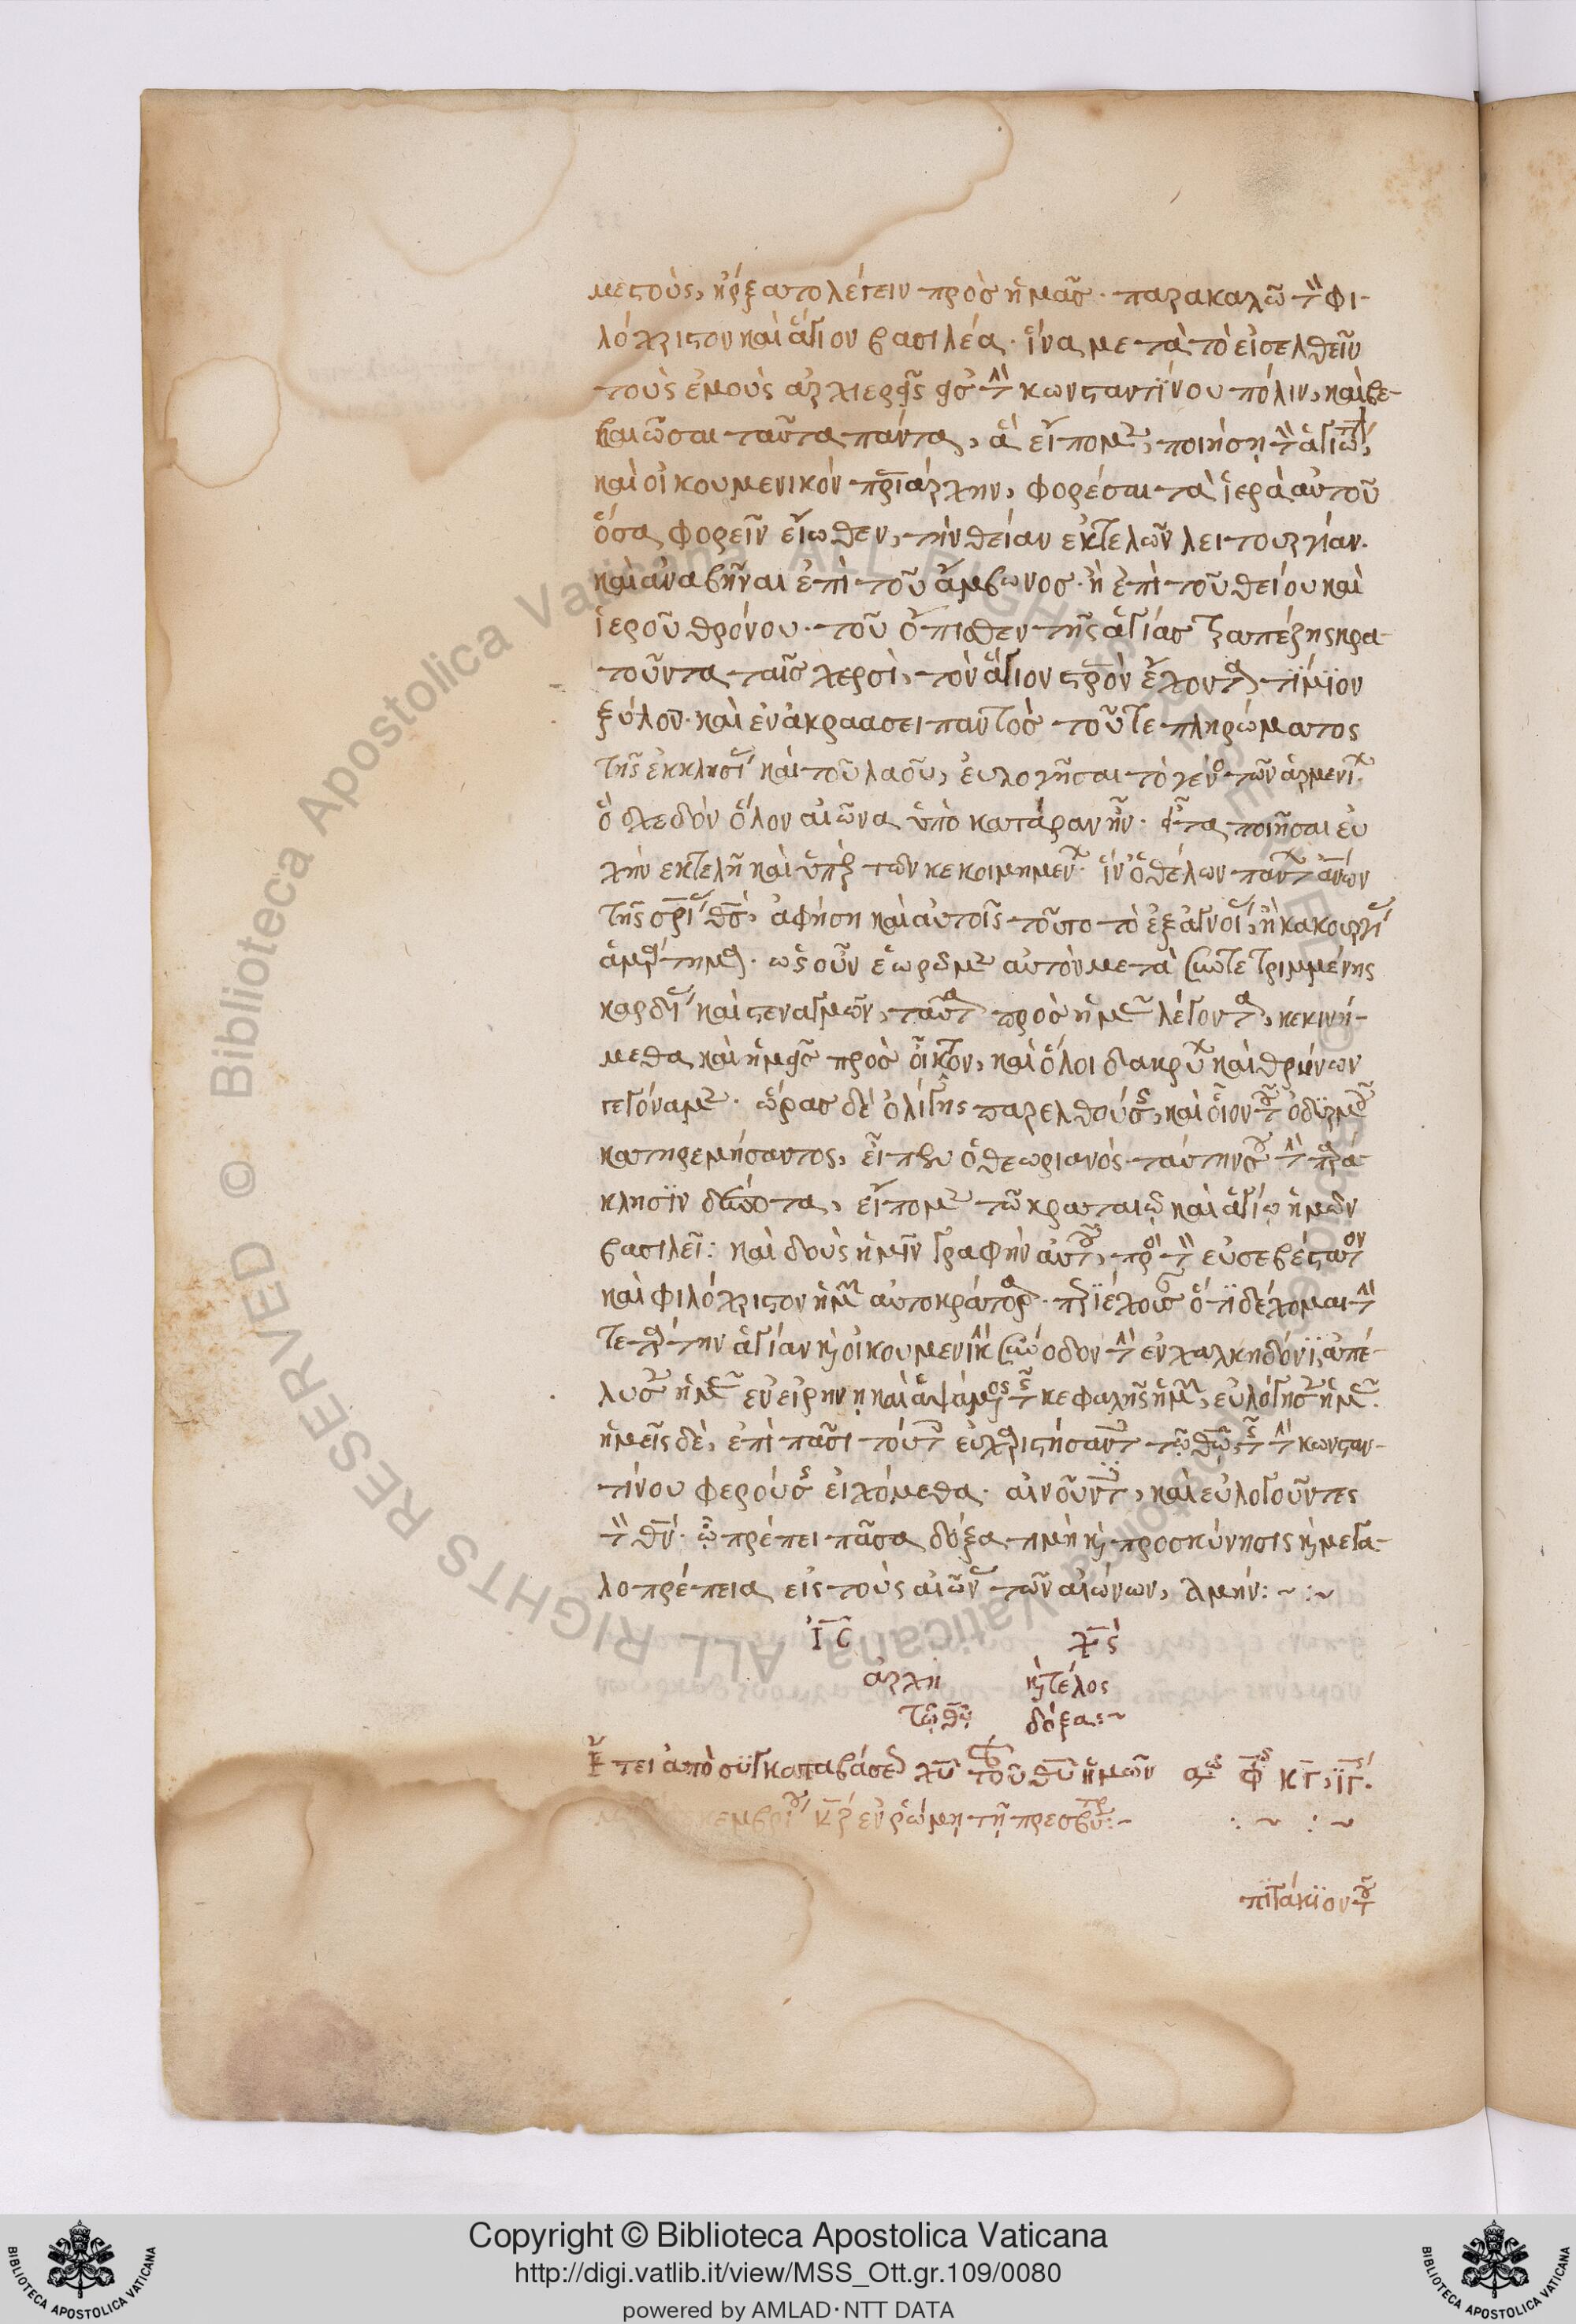 μεστοὺς, ἤρξατο λέγειν πρὸς ἡμᾶς· παρακαλῶ τὸν φι-
λόχριστον καὶ ἅγιον βασιλέα· ἵνα μετὰ τὸ εἰσελθεῖν
τοὺς ἐμοὺς ἀρχιερεῖς εἰς τὴν κωνσταντίνου πόλιν, καὶ βε-
βαιῶσαι ταῦτα πάντα, ἃ εἴπομεν, ποιήση τὸν ἁγιώτ,
καὶ οἰκουμενικόν πριάρχην, φορέσαι τὰ ἱερὰ αὐτοῦ
ὅσα φορεῖν εἴωθεν, τὴν θείαν ἐκτελῶν λειτουργίαν.
καὶ ἀναβῆναι ἐπὶ τοῦ ἄμβωνος· ἢ ἐπὶ τοῦ θείου καὶ
ἱεροῦ θρόνου· τοῦ ὄπισθεν τῆς ἁγίας τραπέζης κρα-
τοῦντα ταῖς χερσὶ, τὸν ἅγιον σρὸν ἔχοντα τίμϊον
ξύλον· καὶ ἐν ἀκροάσει παντὸς τοῦ τε πληρώματος
τῆς ἐκκλησί καὶ τοῦ λαοῦ, εὐλογῆσαι τὸ γένο τῶν ἀρμενί.
ὃ σχεδὸν ὅλον αἰῶνα ὑπὸ κατάραν ἦν· εἶτα ποιῆσαι εὐ
χὴν ἐκτελῆ καὶ ὑπὲρ τῶν κεκοιμημέν· ἵν' ὁ θέλων πάντ ἀνων
τῆς σρί θς, ἀφήση καὶ αὐτοῖς τοῦτο τὸ ἐξ ἀγνοί, ἢ κακουργί
ἁμάρτημα· ὡς οὖν ἑωρῶμεν αὐτὸν μετὰ συντετριμμένης
καρδί καὶ στεναγμῶν, ταῦτα πρὸς ἡμ λέγοντα, κεκινή-
μεθα καὶ ἡμεῖς πρὸς οἶκτον, καὶ ὅλοι δακρύ καὶ θρήνων
γεγόναμεν· ὥρας δὲ ὀλίγης παρελθούσ, καὶ οἷον τοῦ ὀδυρμοῦ
κατηρεμήσαντος, εἶπεν ὁ θεωριανὸς ταύτην σου τὴν παρά-
κλησϊν εἴπομεν τῶ κραταιῷ καὶ ἁγίῳ ἡμῶν
βασιλεῖ: καὶ δοὺς ἡμῖν γραφὴν αὐτοῦ, πρὸ τὸν εὐσεβέστατον
καὶ φιλόχριστον ἡμῶν αὐτοκράτορα· περϊέχουσ ὅτϊ δέχομαι τὴν
τετάρτην ἁγίαν κ οἰκουμενικὴν σύνοδον τὴν ἐν χαλκηδόνϊ, ἀπέ-
λυσεν ἡμ ἐν εἰρήνῃ καὶ ἁψάμενος τῆς κεφαλῆς ἡμῶν, εὐλόγησεν ἡμ.
ἡμεῖς δὲ, ἐπὶ πᾶσι τούτ εὐχαριστήσαντ τῷ θῷ, τῆς τὴν κωνσταν-
τίνου φερούσ εἰχόμεθα· αἰνοῦντ, καὶ εὐλογοῦντες
τὸν θν· ᾧ πρέπει πᾶσα δόξα τιμὴ κ προσκύνησις κ μεγα-
λοπρέπεια εἰς τοὺς αἰῶν τῶν αἰώνων, ἀμήν: ~ :~
ἸC χς
ἀρχὴ κ τέλος
τῷ θῷ δόξα:~
Ἔτει ἀπὸ συγκαταβάσε χυ τοῦ θυ ἡμῶν α φ κγ, ϊγ.
κεμβρί κρ ἐν ῥώμῃ τῇ πρεσβυτρ:~ :~ :~
πϊτάκϊον τοῦ
Copyright © Biblioteca Apostolica Vaticana
http://digi.vatlib.it/view/MSS_Ott.gr.109/0080
powered by AMLAD·NTT DATA